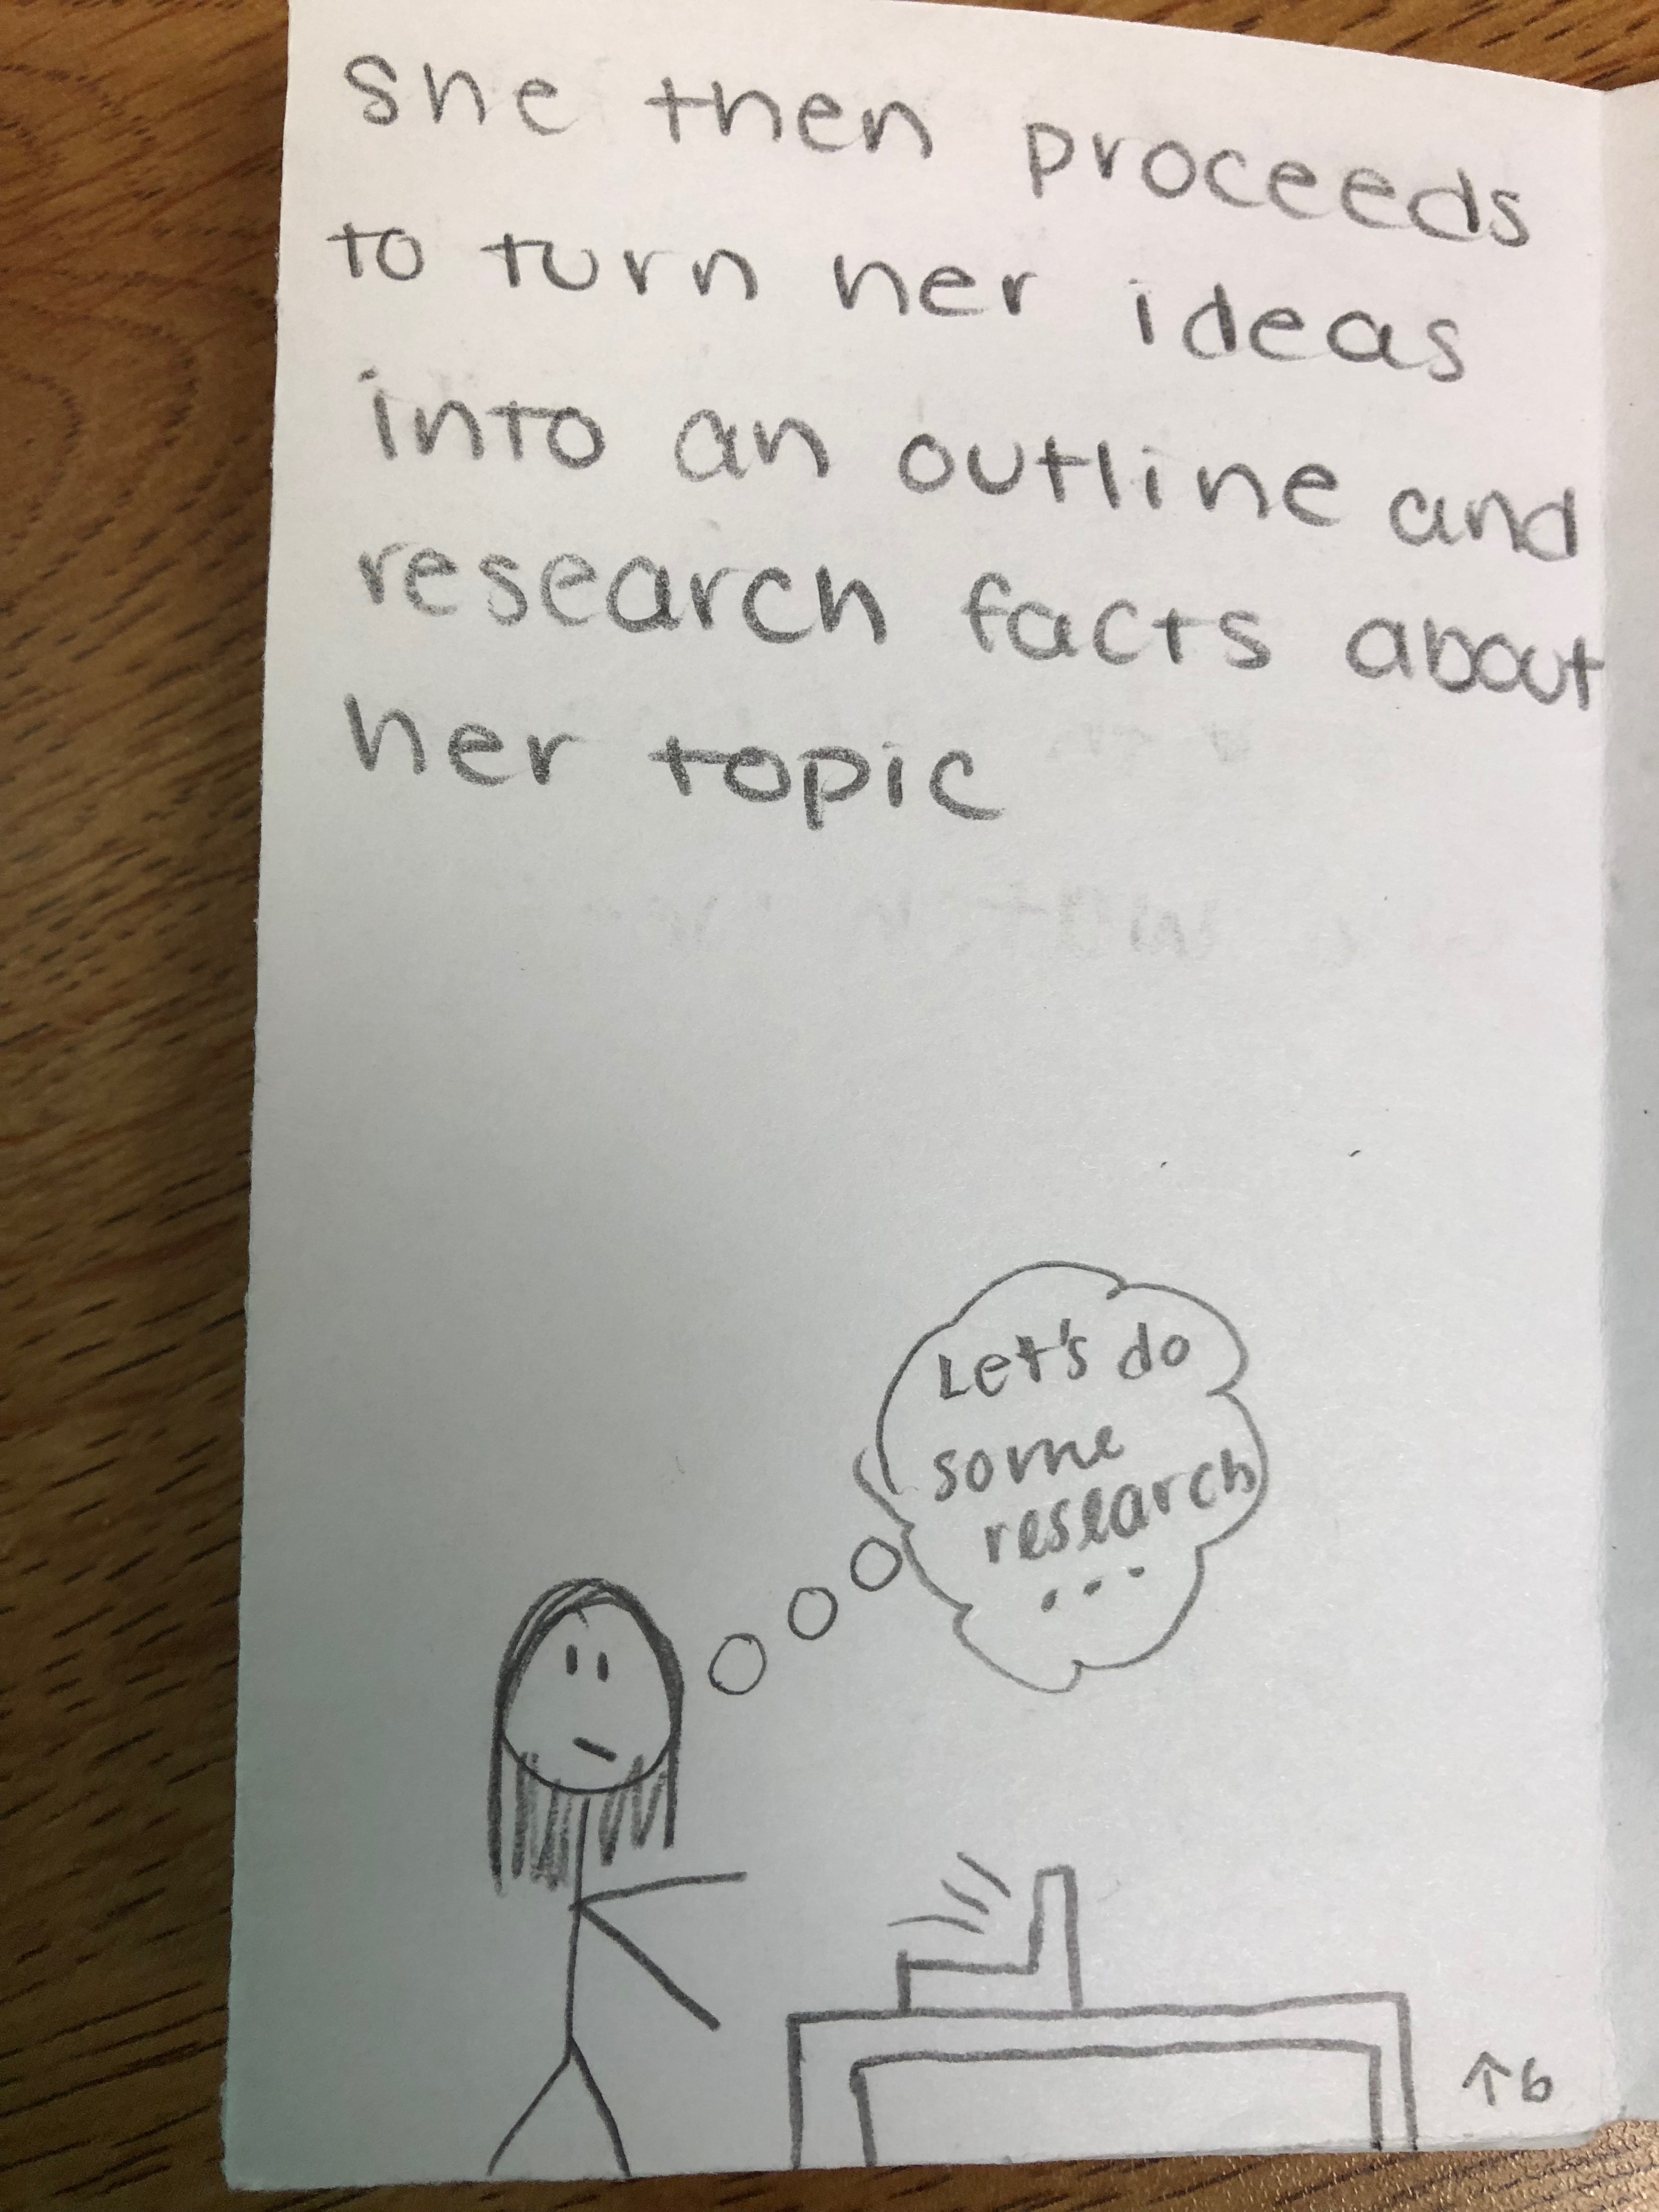 she then proceeds
to turn her ideas
into an outline and
research facts about
her topic
Let's do
some
research
...
↑6